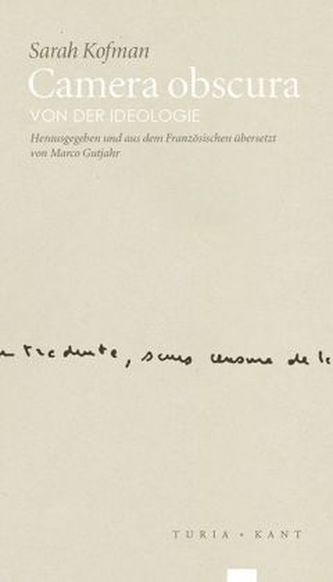 Sarah Kofman
Camera obscura
VON DER IDEOLOGIE
Herausgegeben und aus dem Französischen übersetzt
von Marco Gutjahr
, sans censure de
TURIA + KANT